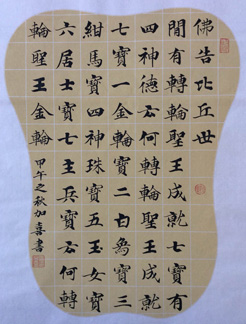 佛告比丘世
閒有轉輪聖王成就七寶有
四神德云何轉輪聖王成就
七寶一金輪寶二白象寶三
紺馬寶四神珠寶五玉女寶
六居士寶七主兵寶云何轉
輪聖王金輪
甲午之秋加喜書